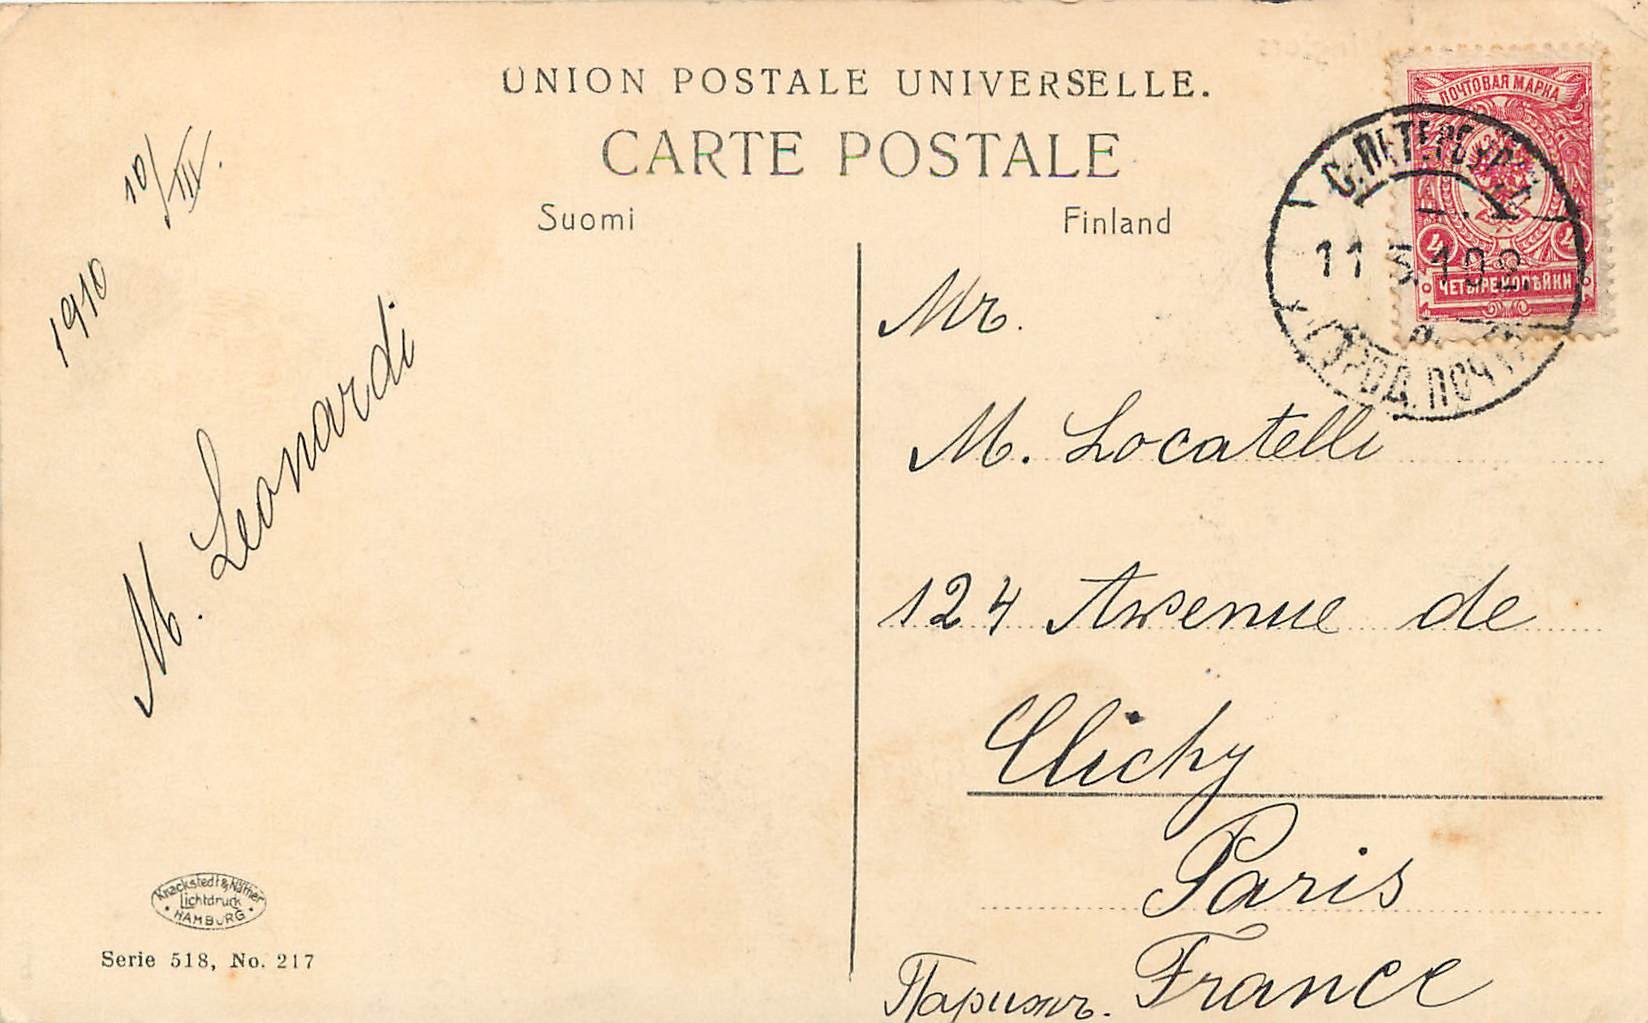 UNION POSTALE UNIVERSELLE.
CARTE POSTALE
Suomi
Finland
ПОЧТОВАЯ МАРКА
4 4
ЧЕТЫРЕ КОПѢЙКИ
С.ПЕТЕРБУРГЪ
11
ГОРОД. ПОЧТА
10/III.
1910
M. Leonardi
Mr.
M. Locatelli
124 Avenue de
Clichy
Paris
Парижъ. France
Knackstedt & Näther
Lichtdruck
• HAMBURG •
Serie 518, No. 217